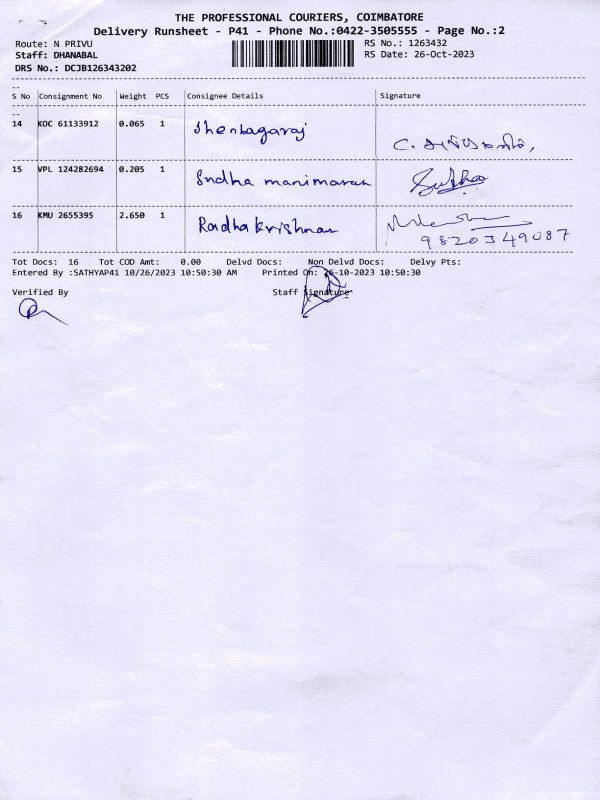 THE PROFESSIONAL COURIERS, COIMBATORE
Delivery Runsheet - P41 - Phone No.:0422-3505555 - Page No.:2
Route: N PRIVU
RS No.: 1263432
Staff: DHANABAL
RS Date: 26-Oct-2023
DRS No.: DCJB126343202
S No Consignment No Weight PCS Consignee Details Signature
14 KOC 61133912 0.065 1 Shenbagaraj
15 VPL 124282694 0.205 1 Sudha manimaran Sudha
16 KMU 2655395 2.650 1 Radha krishnan
9820349087
Tot Docs: 16 Tot COD Amt: 0.00 Delvd Docs: Non Delvd Docs: Delvy Pts:
Entered By :SATHYAP41 10/26/2023 10:50:30 AM Printed On: 26-10-2023 10:50:30
Verified By Staff Signature